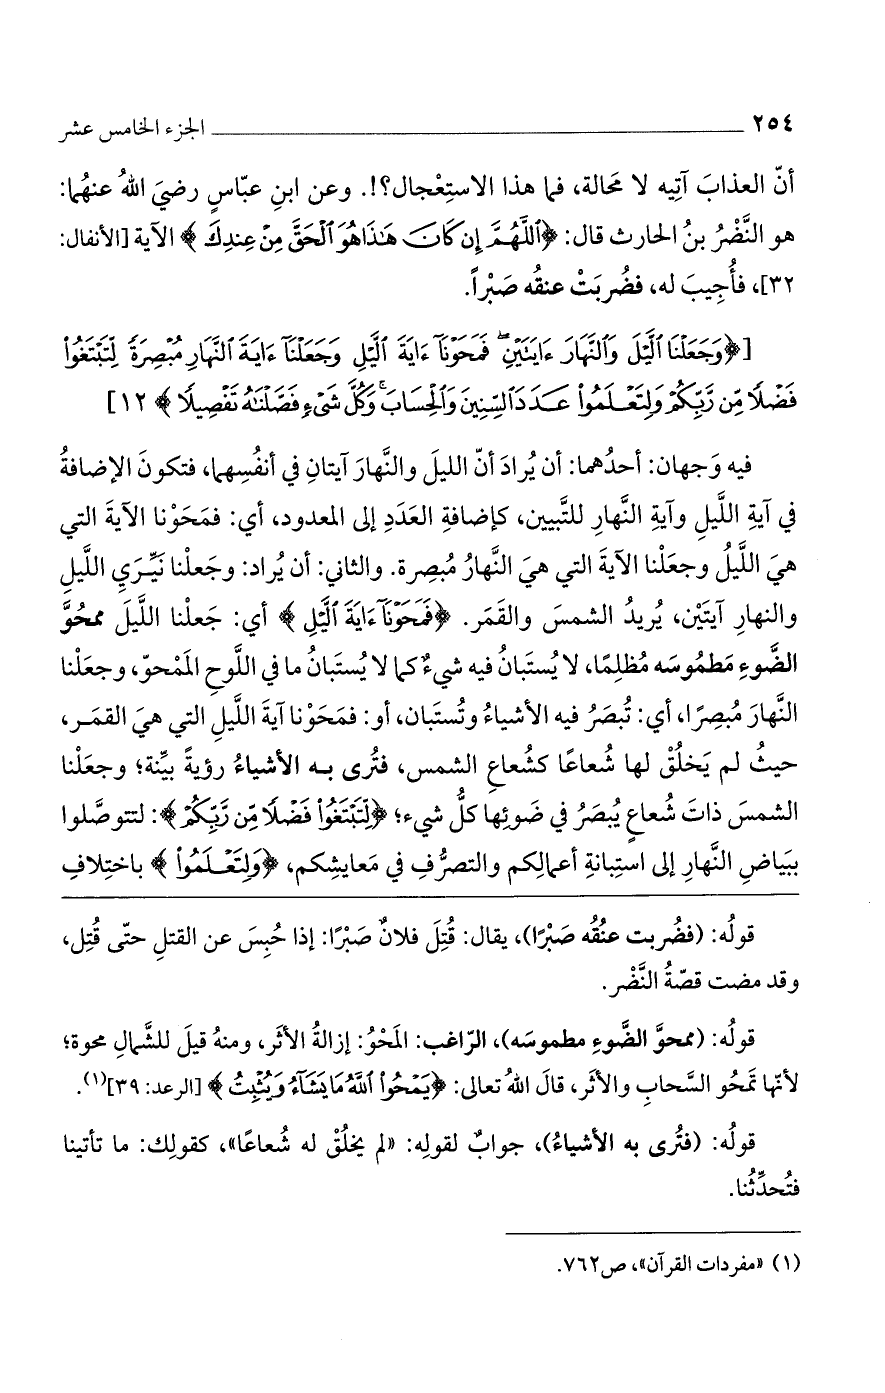 ٢٥٤ ــــــــــــــــــــ الجزء الخامس عشر
أنّ العذابَ آتِيه لا مَحالة، فما هذا الاستِعْجال؟!. وعن ابنِ عبّاسٍ رضيَ اللهُ عنهُما:
هو النَّضْرُ بنُ الحارث قال: ﴿ٱللَّهُمَّ إِن كَانَ هَٰذَا هُوَ ٱلْحَقَّ مِنْ عِندِكَ﴾ الآية [الأنفال:
٣٢]، فأُجِيبَ له، فضُربَتْ عنقُه صَبْراً.
[﴿وَجَعَلْنَا ٱلَّيْلَ وَٱلنَّهَارَ ءَايَتَيْنِ ۖ فَمَحَوْنَآ ءَايَةَ ٱلَّيْلِ وَجَعَلْنَآ ءَايَةَ ٱلنَّهَارِ مُبْصِرَةً لِّتَبْتَغُوا۟
فَضْلًا مِّن رَّبِّكُمْ وَلِتَعْلَمُوا۟ عَدَدَ ٱلسِّنِينَ وَٱلْحِسَابَ ۚ وَكُلَّ شَىْءٍ فَصَّلْنَٰهُ تَفْصِيلًا﴾ ١٢]
فيه وَجهان: أحدُهما: أن يُرادَ أنّ الليلَ والنَّهارَ آيتانِ في أنفُسِهما، فتكونَ الإضافةُ
في آيةِ اللَّيلِ وآيةِ النَّهارِ للتَّبيين، كإضافةِ العَدَدِ إلى المعدود، أي: فمَحَوْنا الآيةَ التي
هيَ اللَّيلُ وجعَلْنا الآيةَ التي هيَ النَّهارُ مُبصِرة. والثاني: أن يُراد: وجَعلْنا نَيِّرَيِ اللَّيلِ
والنهارِ آيتَيْن، يُريدُ الشمسَ والقَمَر. ﴿فَمَحَوْنَآ ءَايَةَ ٱلَّيْلِ﴾ أي: جَعلْنا اللَّيلَ ممحُوَّ
الضَّوءِ مَطموسَه مُظلِمًا، لا يُستَبانُ فيه شيءٌ كما لا يُستَبانُ ما في اللَّوحِ المَمْحوّ، وجعَلْنا
النَّهارَ مُبصِرًا، أي: تُبصَرُ فيه الأشياءُ وتُستَبان، أو: فمَحَوْنا آيةَ اللَّيلِ التي هيَ القمَـر،
حيثُ لم يَخلُقْ لها شُعاعًا كشُعاعِ الشمس، فتُرى بـه الأشياءُ رؤيةً بيِّنة؛ وجعَلْنا
الشمسَ ذاتَ شُعاعٍ يُبصَرُ في ضَوئِها كلُّ شيء؛ ﴿لِّتَبْتَغُوا۟ فَضْلًا مِّن رَّبِّكُمْ﴾: لتتوصَّلوا
ببَياضِ النَّهارِ إلى استِبانةِ أعمالِكم والتصرُّفِ في مَعايشِكم، ﴿وَلِتَعْلَمُوا۟﴾ باختِلافِ
قولُه: (فضُربت عنُقُه صَبْرًا)، يقال: قُتِلَ فلانٌ صَبْرًا: إذا حُبِسَ عن القتلِ حتّى قُتِل،
وقد مضت قصّةُ النَّضْر.
قولُه: (ممحوَّ الضَّوءِ مطموسَه)، الرّاغب: المَحْوُ: إزالةُ الأثَر، ومنهُ قيلَ للشَّمالِ محوة؛
لأنّها تَمحُو السَّحابَ والأثَر، قالَ اللهُ تعالى: ﴿يَمْحُوا۟ ٱللَّهُ مَا يَشَآءُ وَيُثْبِتُ﴾ [الرعد: ٣٩](١).
قولُه: (فتُرى به الأشياءُ)، جوابٌ لقولِه: «لم يخلُقْ له شُعاعًا»، كقولِك: ما تأتينا
فتُحدِّثُنا.
(١) «مفردات القرآن»، ص٧٦٢.